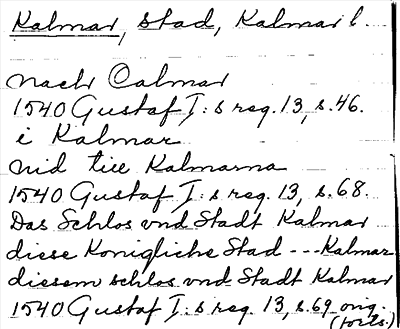 Kalmar, stad, Kalmar l.
nach Calmar
1540 Gustaf I:s reg. 13, s. 46.
i Kalmar
nid till Kalmarna
1540 Gustaf I:s reg. 13, s. 68.
Das Schlos vnd Stadt Kalmar
diese Konigliche Stad --- Kalmar
diesem schlos vnd Stadt Kalmar
1540 Gustaf I:s reg. 13, s. 69 orig.
(forts.)